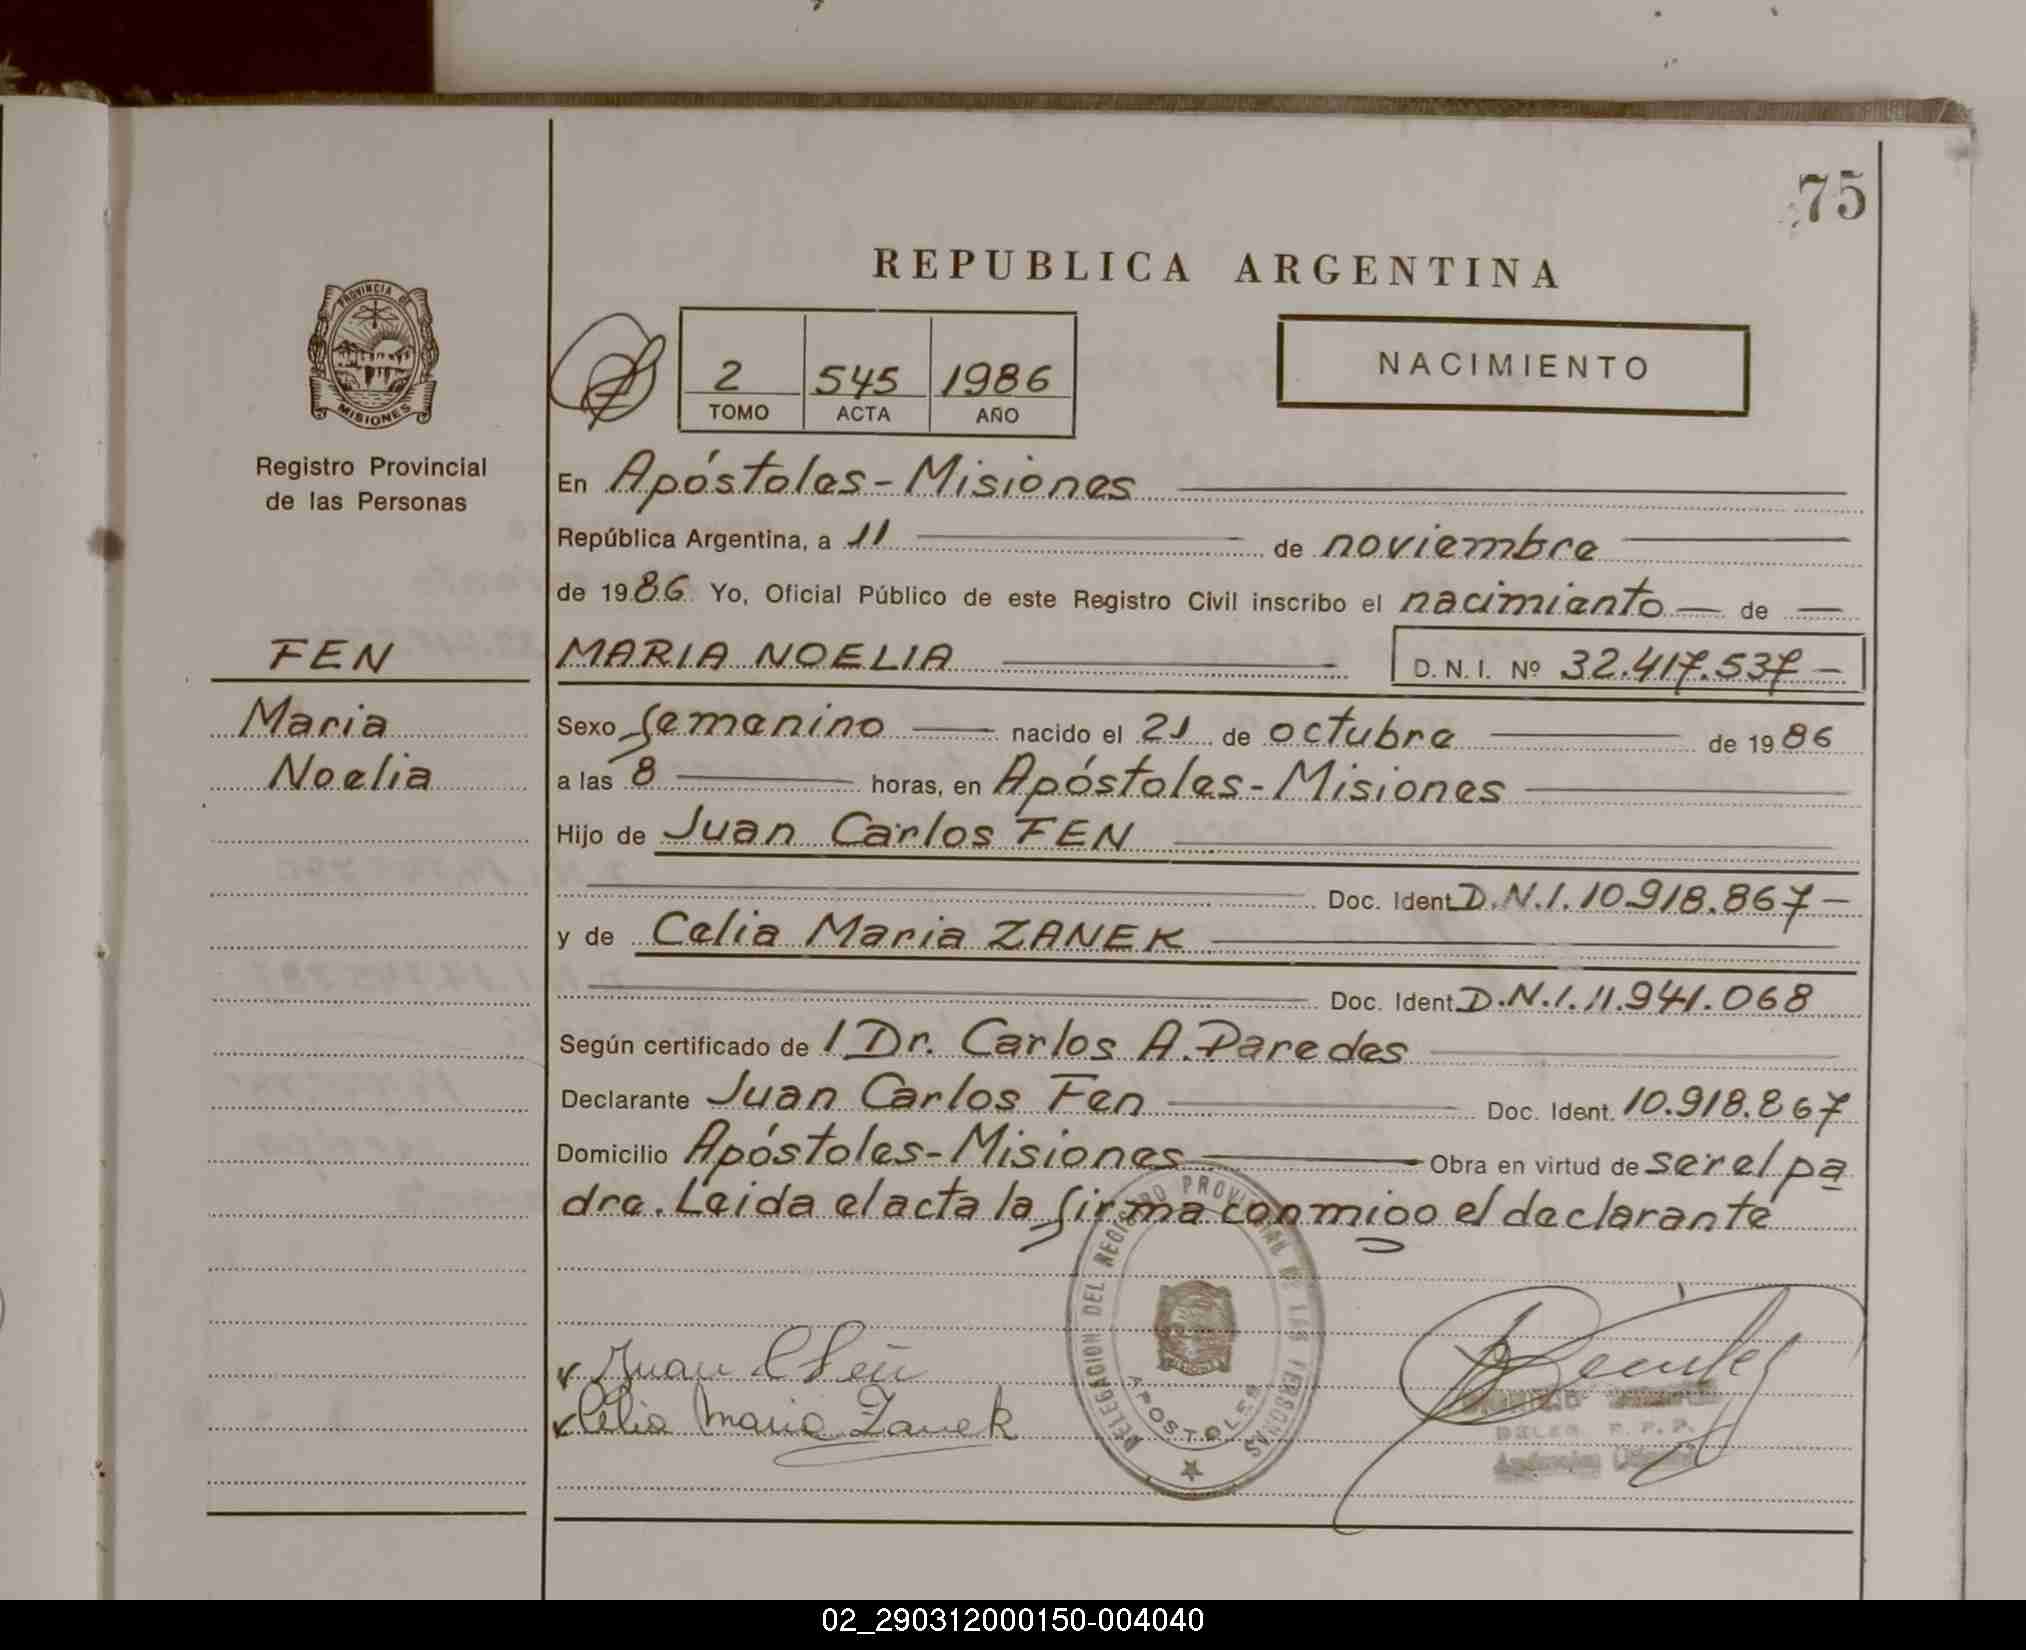 75
REPUBLICA ARGENTINA
PROVINCIA DE
MISIONES
2 545 1986
TOMO ACTA AÑO
NACIMIENTO
Registro Provincial
de las Personas
En Apóstoles - Misiones
República Argentina, a 11 de noviembre
de 1986 Yo, Oficial Público de este Registro Civil inscribo el nacimiento de
FEN
MARIA NOELIA D.N.I. Nº 32.417.537-
Maria
Sexo femenino nacido el 21 de octubre de 1986
Noelia
a las 8 horas, en Apóstoles - Misiones
Hijo de Juan Carlos FEN
Doc. Ident. D.N.I. 10.918.867-
y de Celia Maria ZANEK
Doc. Ident. D.N.I. 11.941.068
Según certificado de 1 Dr. Carlos A. Paredes
Declarante Juan Carlos Fen Doc. Ident. 10.918.867
Domicilio Apóstoles - Misiones Obra en virtud de ser el pa
dre. Leida el acta la firma conmigo el declarante
Juan C Fen
Celia Maria Zanek
DELEGACION DEL REGISTRO PROVINCIAL DE LAS PERSONAS
APOSTOLES
Benitez
DELEG. R.P.P.
02_290312000150-004040